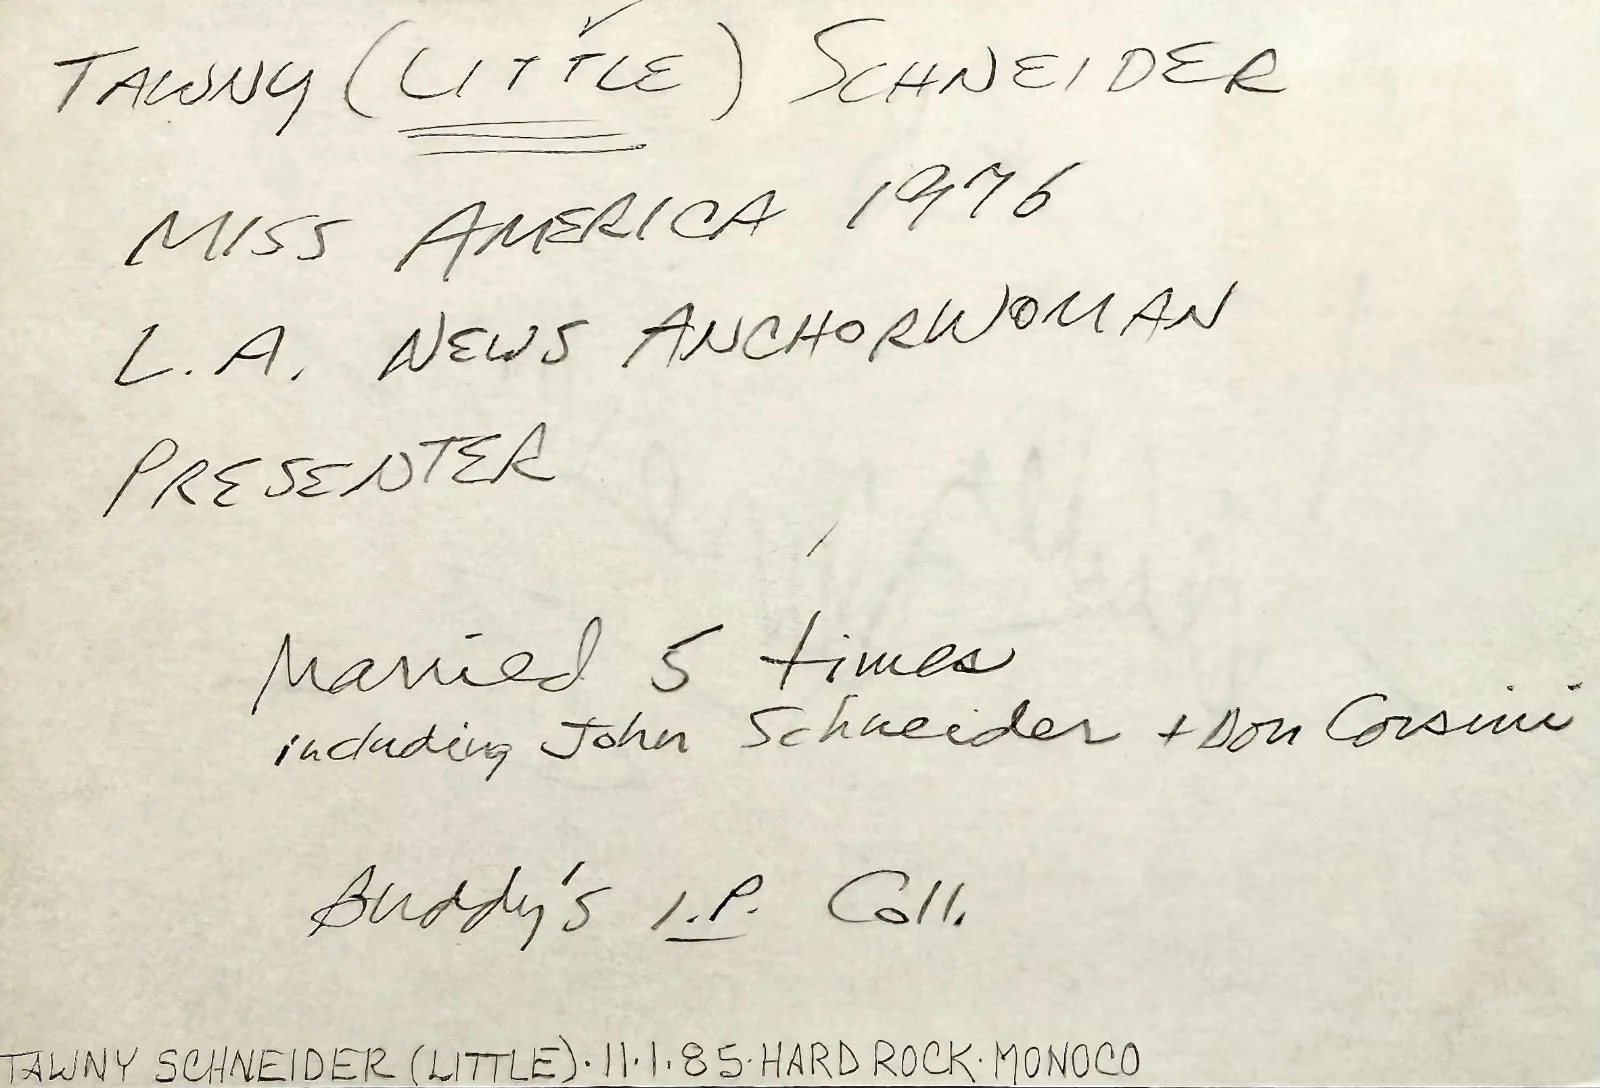 TAWNY (LITTLE) SCHNEIDER
MISS AMERICA 1976
L.A. NEWS ANCHORWOMAN
PRESENTER
Married 5 times
including John Schneider + Don Corsini
Buddy's I.P. Coll.
TAWNY SCHNEIDER (LITTLE)·11·1·85·HARD ROCK·MONOCO